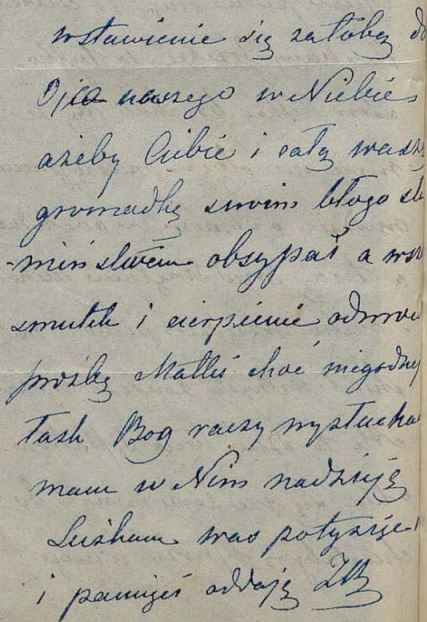 wstawienie się za tobą do
Ojca naszego w Niebie
ażeby Ciebie i całą waszą
gromadkę swoim błogosła
-mieństwem obsypał a wsze
smutki i cierpienie odwró
prośby Matki choć niegodnej
łask Bog raczy wysłucha
mam w Nim nadzieję
Ściskam was
i pamięci oddaję ZB